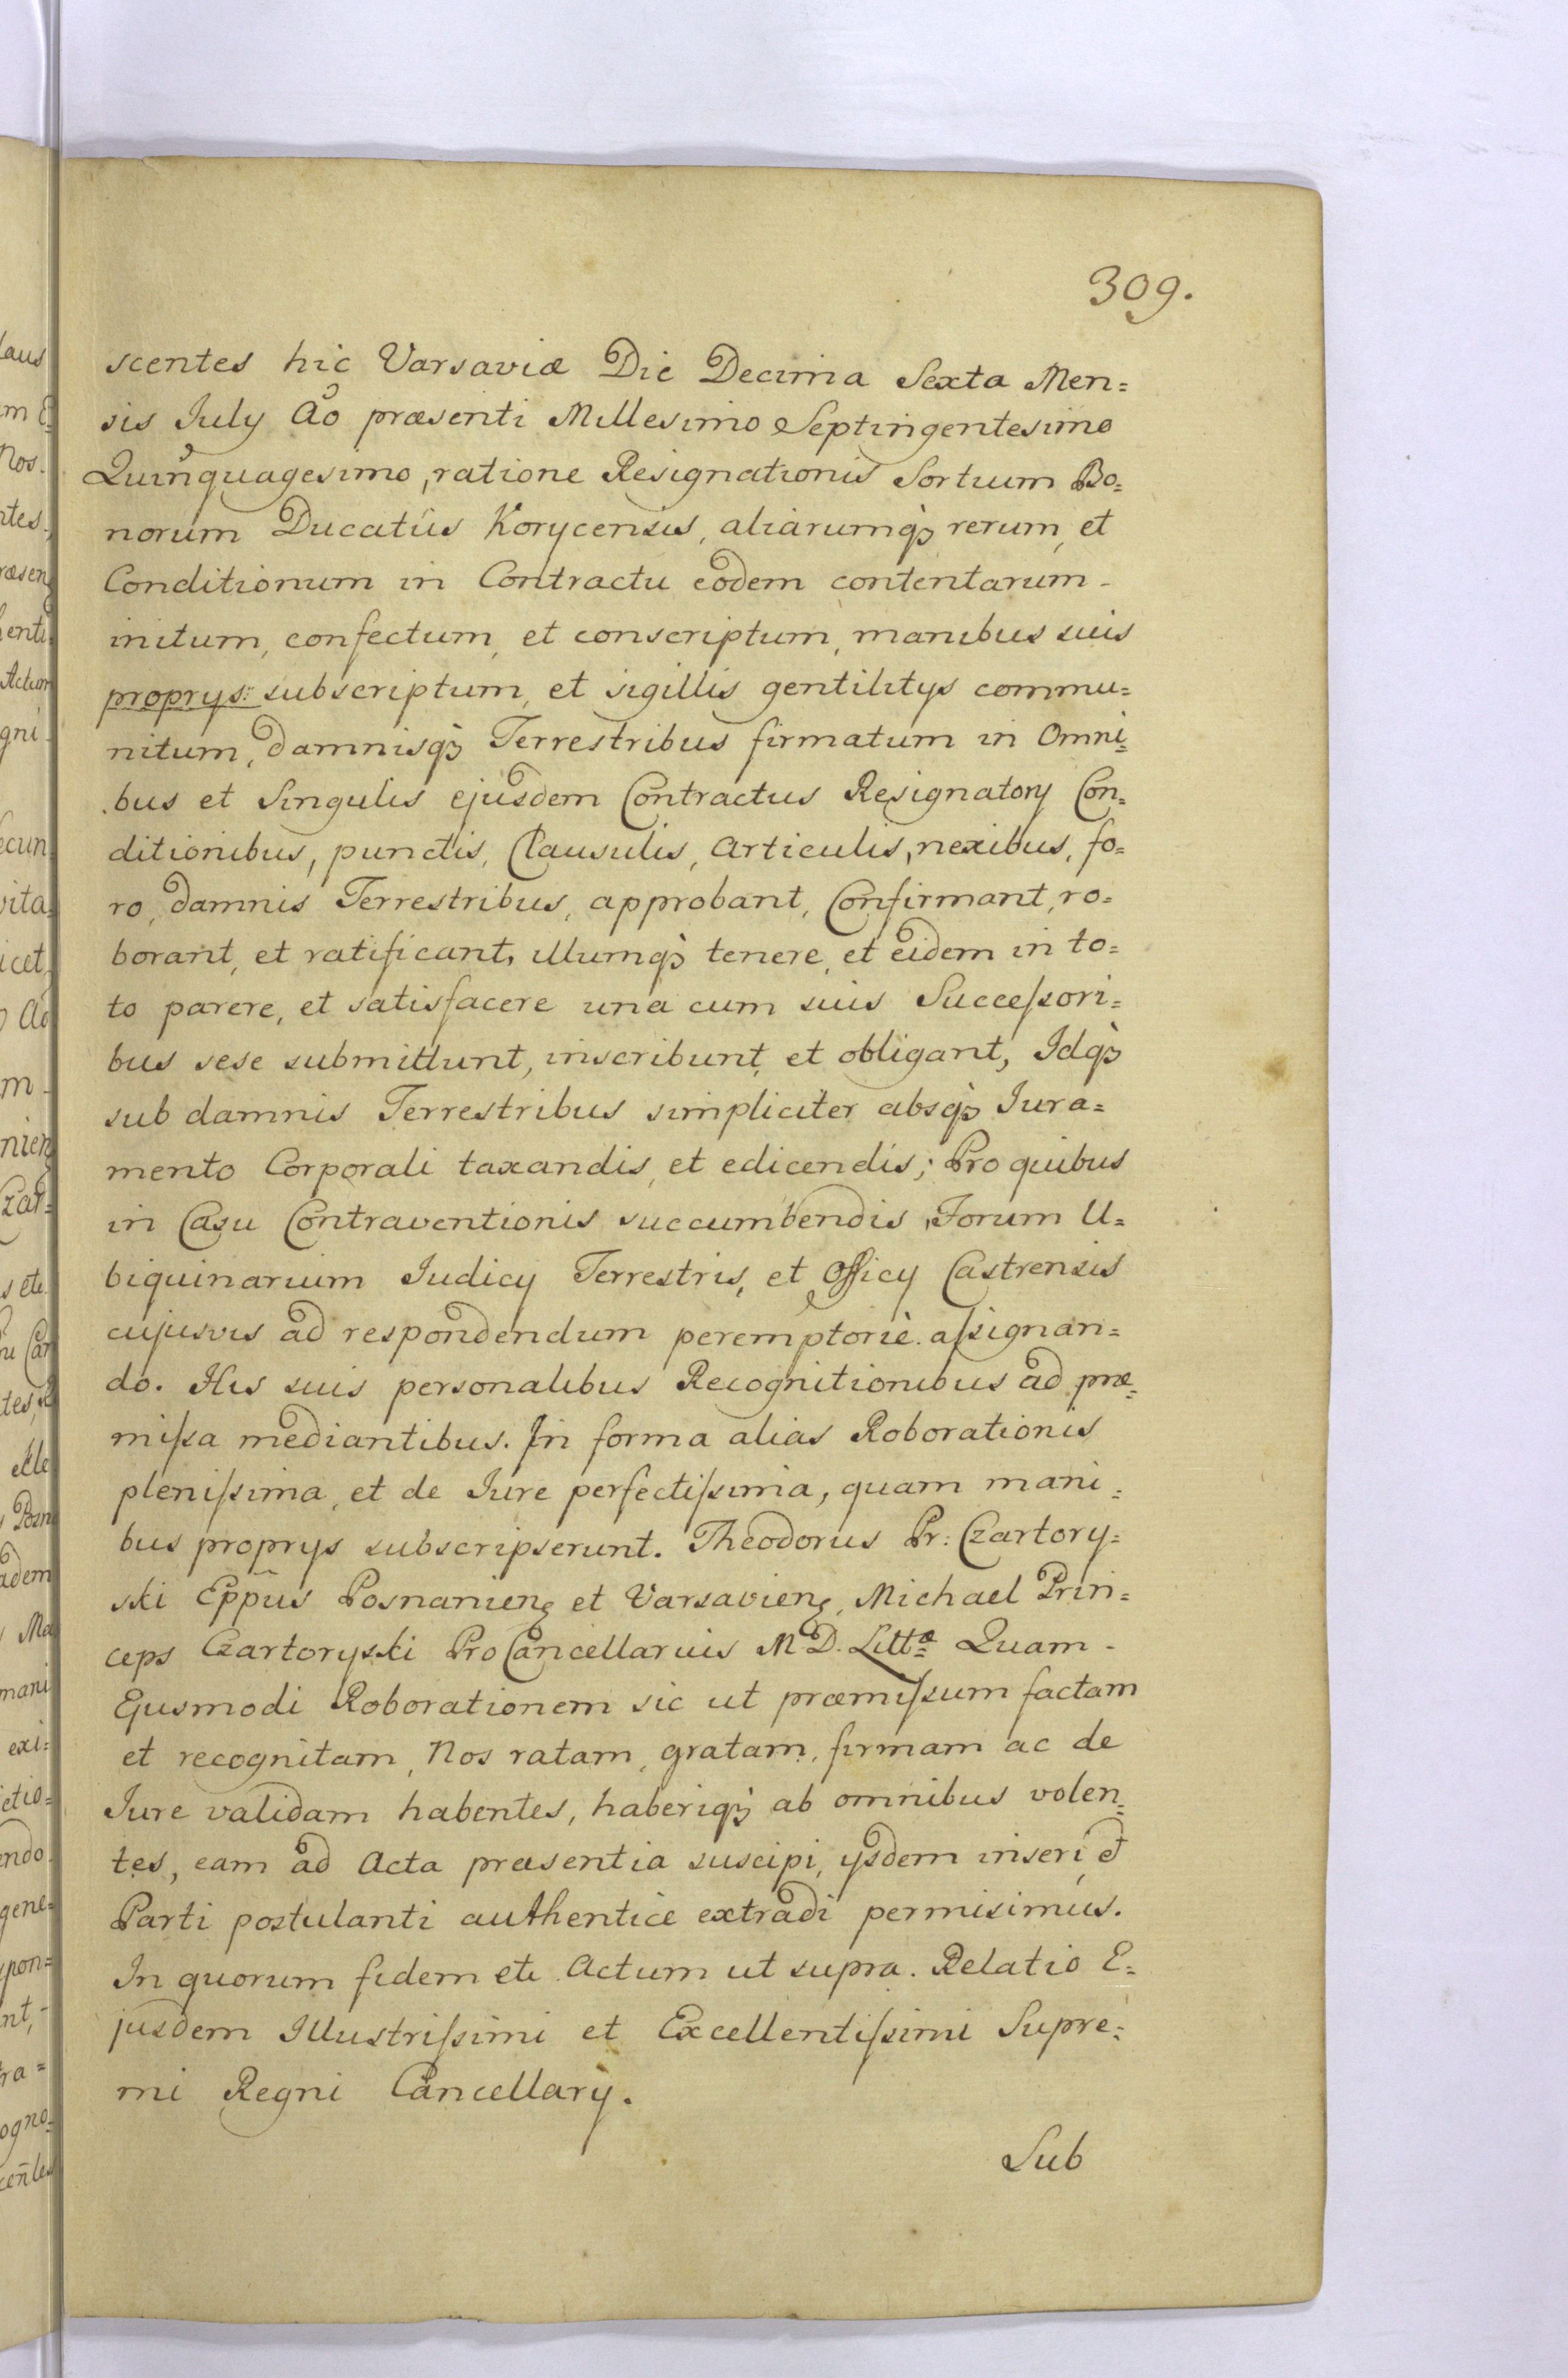 309.
scentes hic Varsaviæ Die Decima Sexta Men=
sis July Ao præsenti Millesimo Septingentesimo
Quinquagesimo, ratione Resignationis Sortium Bo=
norum Ducatûs Korycensis, aliarumq̀ꝫ rerum, et
Conditionum in Contractu eodem contentarum -
initum, confectum, et conscriptum, manibus suis
proprys: subscriptum, et sigillis gentilitys commu=
nitum, damnisq̀ꝫ Terrestribus firmatum in Omni=
bus et Singulis ejusdem Contractus Resignatory Con=
ditionibus, punctis, Clausulis, Articulis, nexibus, fo=
ro, damnis Terrestribus, approbant, Confirmant, ro=
borant, et ratificant, illumq̀ꝫ tenere, et eidem in to=
to parere, et satisfacere una cum suis Succeſsori=
bus sese submittunt, inscribunt, et obligant, Idq̀ꝫ
sub damnis Terrestribus simpliciter absq̀ꝫ Jura=
mento Corporali taxandis, et edicendis; Pro quibus
in Casu Contraventionis succumbendis, Forum U=
biquinarium Judicy Terrestris, et Officy Castrensis
cujusvis ad respondendum peremptoriè aſsignan=
do. His suis personalibus Recognitionibus ad præ=
miſsa mediantibus. In forma alias Roborationis
pleniſsima, et de Jure perfectiſsima, quam mani=
bus proprys subscripserunt. Theodorus Pr: Czartory=
ski Epp̃us Posnanienꝫ et Varsavienꝫ, Michael Prin=
ceps Czartoryski ProCancellarius M D. Littæ Quam -
Ejusmodi Roborationem sic ut præmiſsum factam
et recognitam, Nos ratam, gratam, firmam ac de
Jure validam habentes, haberiq̀ꝫ ab omnibus volen=
tes, eam ad Acta præsentia suscipi, ysdem inseri, et
Parti postulanti authentice extradi permisimus.
In quorum fidem etc Actum ut supra. Relatio E=
jusdem Illustriſsimi et Excellentiſsimi Supre=
mi Regni Cancellary.
Sub